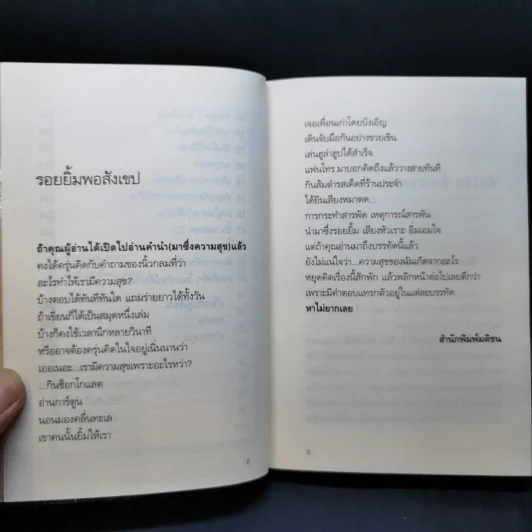 รอยยิ้มพอสังเขป
ถ้าคุณผู้อ่านได้เปิดไปอ่านคำนำ(มาซึ่งความสุข)แล้ว
คงได้ครุ่นคิดกับคำถามของนิ้วกลมที่ว่า
อะไรทำให้เรามีความสุข?
บ้างตอบได้ทันทีทันใด แถมร่ายยาวได้ทั้งวัน
ถ้าเขียนก็ได้เป็นสมุดหนึ่งเล่ม
บ้างก็คงใช้เวลานึกหลายวินาที
หรืออาจต้องครุ่นคิดในใจอยู่เนิ่นนานว่า
เออเนอะ...เรามีความสุขเพราะอะไรหว่า?
...กินช็อกโกแลต
อ่านการ์ตูน
นอนมองคลื่นทะเล
เขาคนนั้นยิ้มให้เรา
8
เจอเพื่อนเก่าโดยบังเอิญ
เดินจับมือกันอย่างขวยเขิน
เล่นฮูล่าฮูปได้สำเร็จ
แฟนโทร.มาบอกคิดถึงแล้ววางสายทันที
กินส้มตำรสเด็ดที่ร้านประจำ
ได้ยินเสียงหมาตด...
การกระทำสารพัด เหตุการณ์สารพัน
นำมาซึ่งรอยยิ้ม เสียงหัวเราะ อิ่มเอมใจ
แต่ถ้าคุณอ่านมาถึงบรรทัดนี้แล้ว
ยังไม่แน่ใจว่า...ความสุขของฉันเกิดจากอะไร
หยุดคิดเรื่องนี้สักพัก แล้วพลิกหน้าต่อไปเลยดีกว่า
เพราะมีคำตอบแทรกตัวอยู่ในแต่ละบรรทัด
หาไม่ยากเลย
สำนักพิมพ์มติชน
9